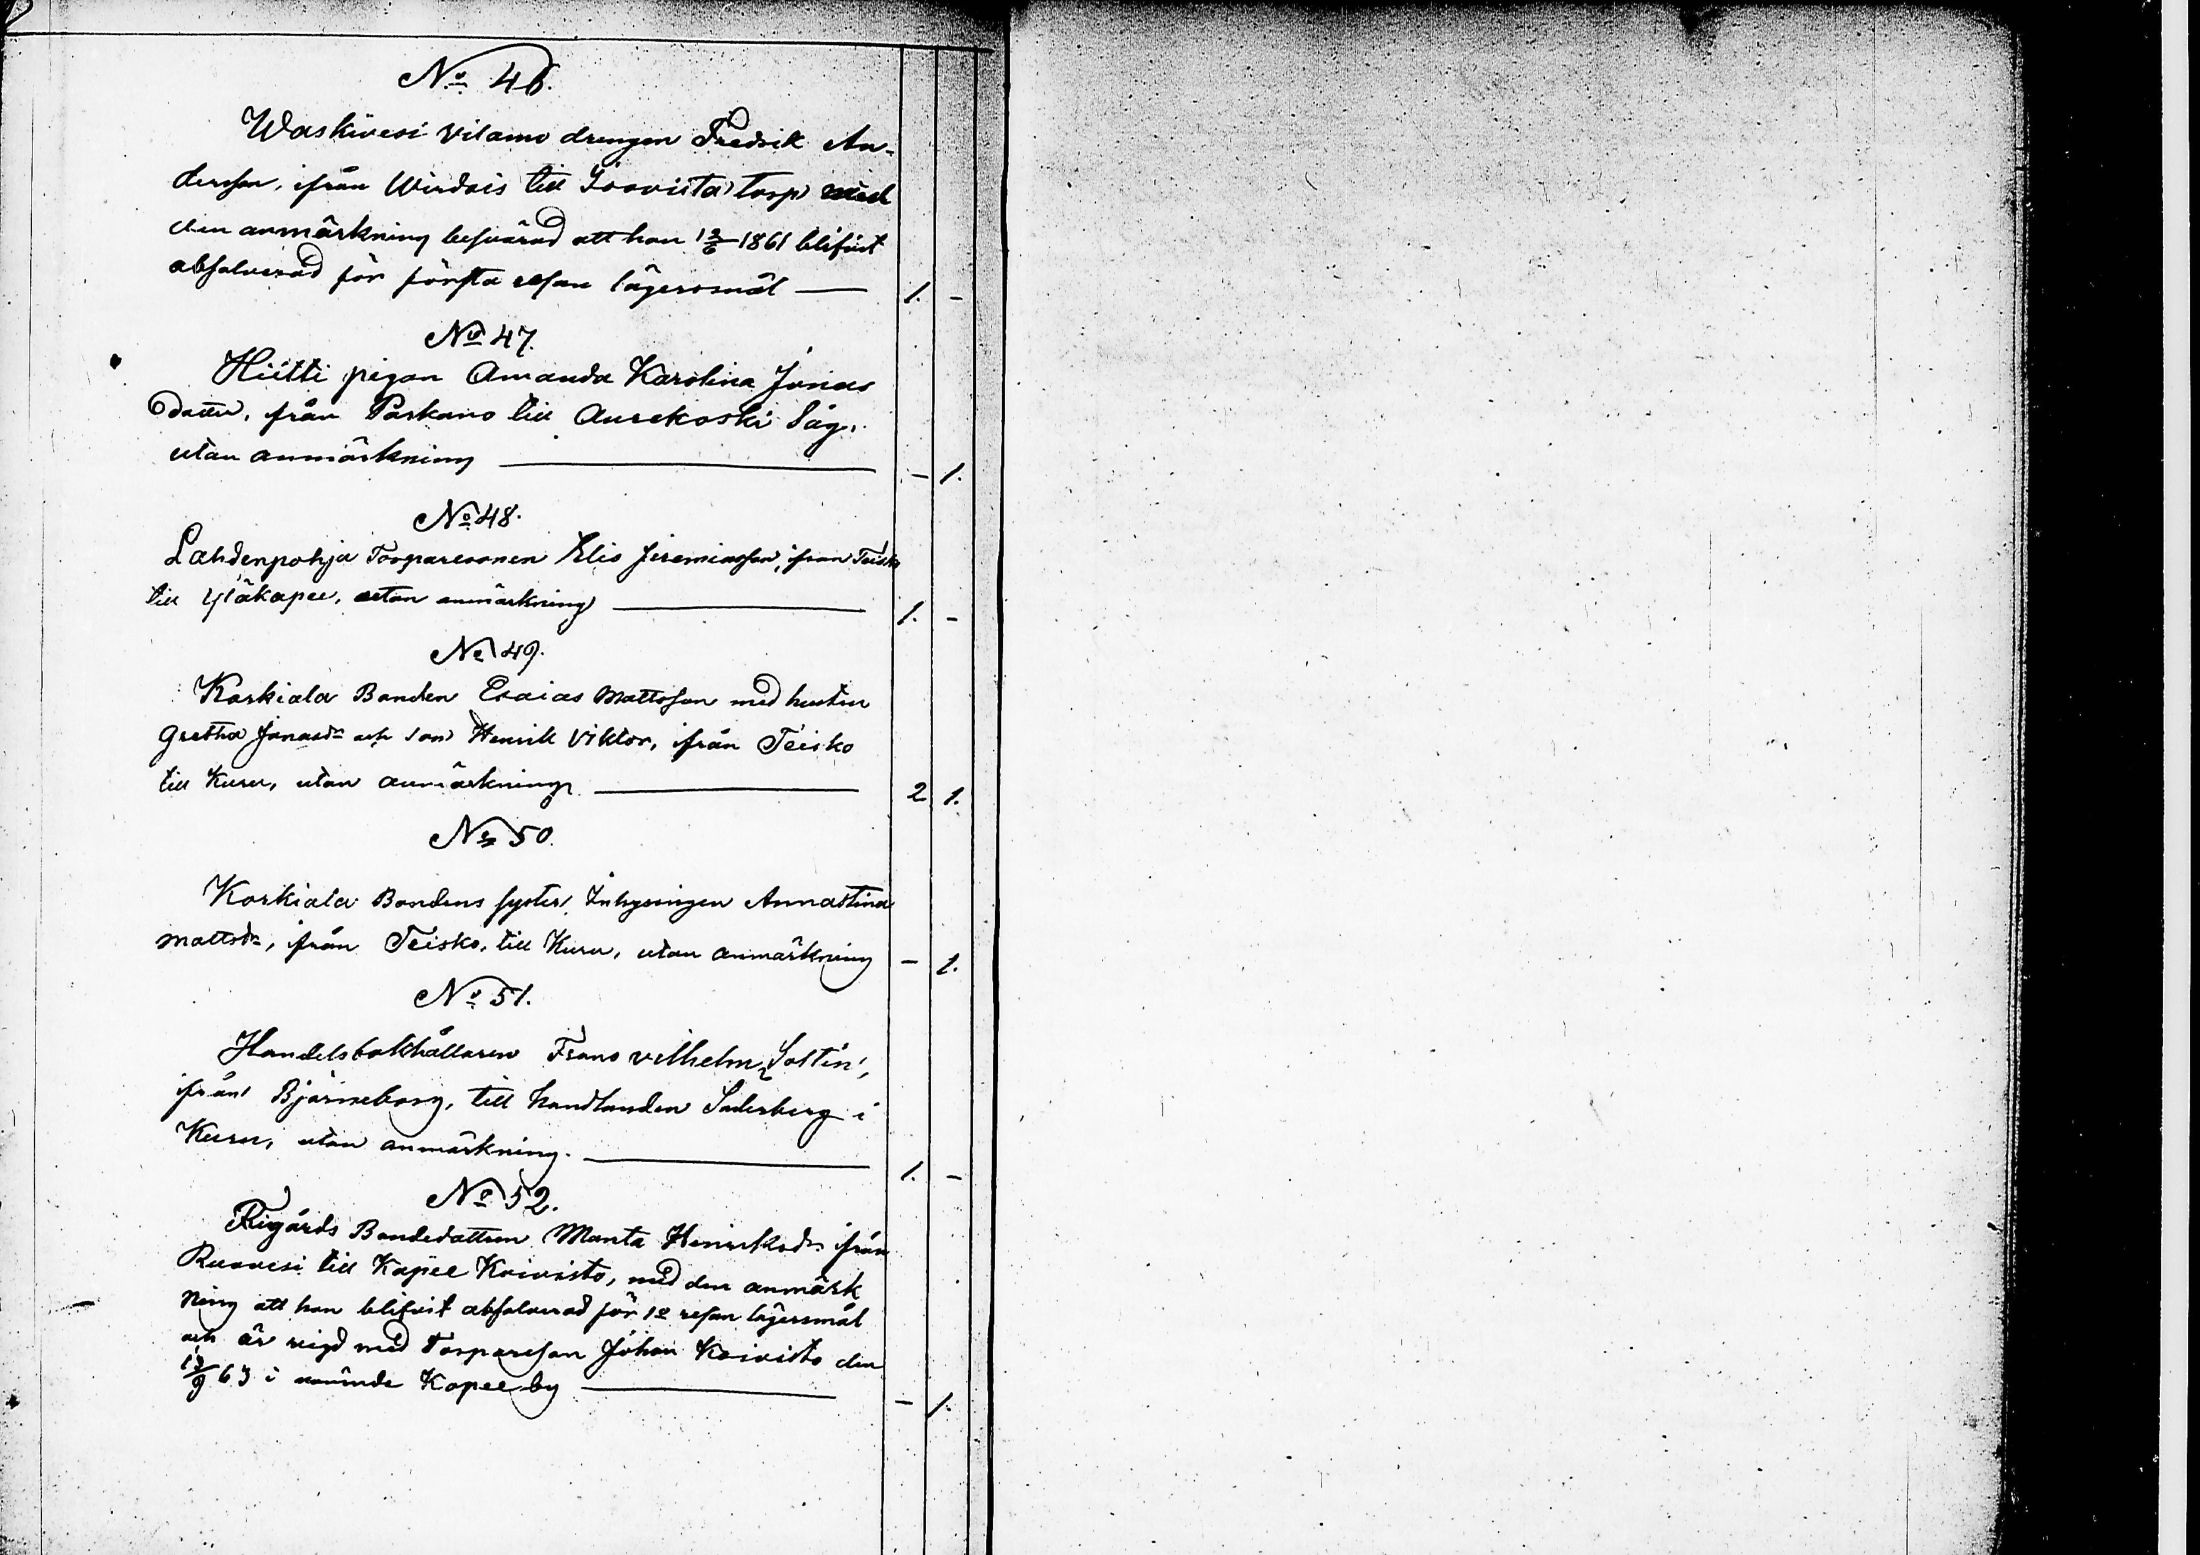 No 46.
Waskivesi Vilamo drengen Fredrik An-
dersson, ifrån Wirdois till Isoviita torp med
den anmärkning besvärad att han 12/6 1861 blifvit
absolverad för första resan lägersmål — 1. -
No 47.
Hiitti pigan Amanda Karolina Jonas
dotter, från Parkano till Aurekoski Såg,
utan anmärkning — - 1.
No 48.
Lahdenpohja Torparesonen Elis Jeremiasson, ifrån Teisko
till Yläkapee, utan anmärkning — 1. -
No 49.
Korkiala Bonden Esaias Mattsson med hustru
Gretha Jonasdr och son Henrik Viktor, ifrån Teisko
till Kuru, utan anmärkning — 2 1.
No 50.
Korkiala Bondens syster, Inhysingen Annastina
Mattsdr, ifrån Teisko, till Kuru, utan anmärkning - 1.
No 51.
Handelsbokhållaren Frans Vilhelm
ifrån Björneborg, till handlanden Söderberg i
Kuru, utan anmärkning. — 1. -
No 52.
Bondedottren Manta Henriksdr ifrån
Ruovesi till Kapee Koivisto, med den anmärk
ning att hon blifvit absolverad för 1a resan lägersmål
och är vigd med Torpareson Johan Koivisto den
63 i Kapee by — - 1.